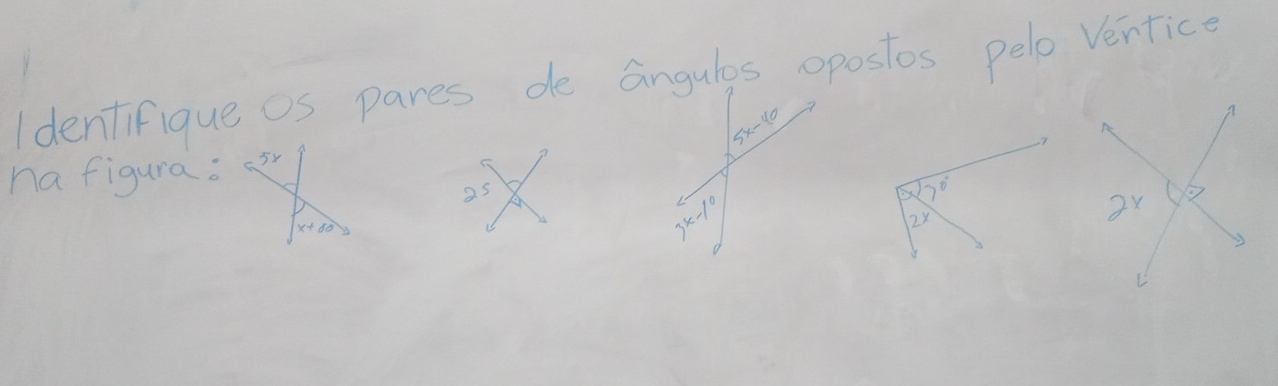 Identifique os pares de ângulos opostos pelo Vértice
na figura:
5x
x+60
25
5x-40
3x-1°
70°
2x
2x